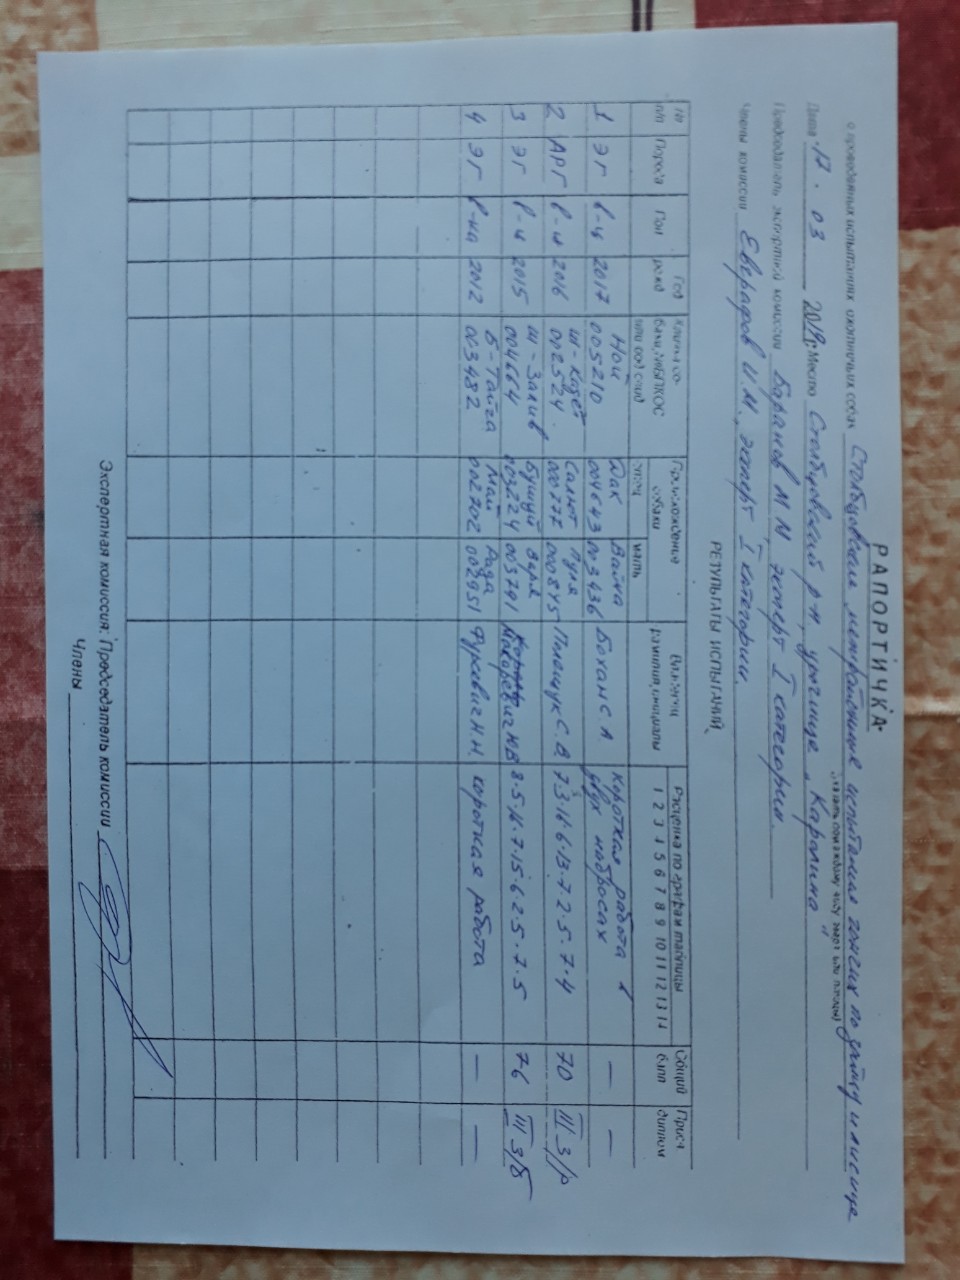 РАПОРТИЧКА
о проведенных испытаниях охотничьих собак Столбцовские межрайонные испытания гончих по зайцу и лисице
(указать при каждому виду зверя или породы)
Дата 17.03 2019г. Место Столбцовский р-н, урочище „Каролина"
Председатель экспертной комиссии Баранов М М эксперт I категории.
Члены комиссии Евграфов И.М., эксперт I категории.
РЕЗУЛЬТАТЫ ИСПЫТАНИЙ.
№ п/п Порода Пол Год рожд Кличка со- баки, №ВПКОС Происхождение собаки отец мать Владелец фамилия, инициалы Расценка по графам таблицы 1 2 3 4 5 6 7 8 9 10 11 12 13 14 Общий балл Присв диплом
1 ЭГ в-ч 2017 Ной 005210 Дак 004643 Вайна 003436 Бохан С. А. Короткая работа в двух набросах — —
2 АРГ в-ч 2016 ш-Кадет 002524 Салют 000777 Пуля 000845 Пищук С. В 7 3 16 6 13 7 2 5 7 4 70 III З/р
3 ЭГ в-ч 2015 ш-Залив 004664 Бушуй 003224 Варя 003791 Макаревич Н В 8 5 16 7 15 6 2 5 7 5 76 III З/б
4 ЭГ в-ка 2012 б-Тайга 003482 Май 002702 Рада 002951 Фурсевич Н. Н. короткая работа — —
Экспертная комиссия: Председатель комиссии
Члены